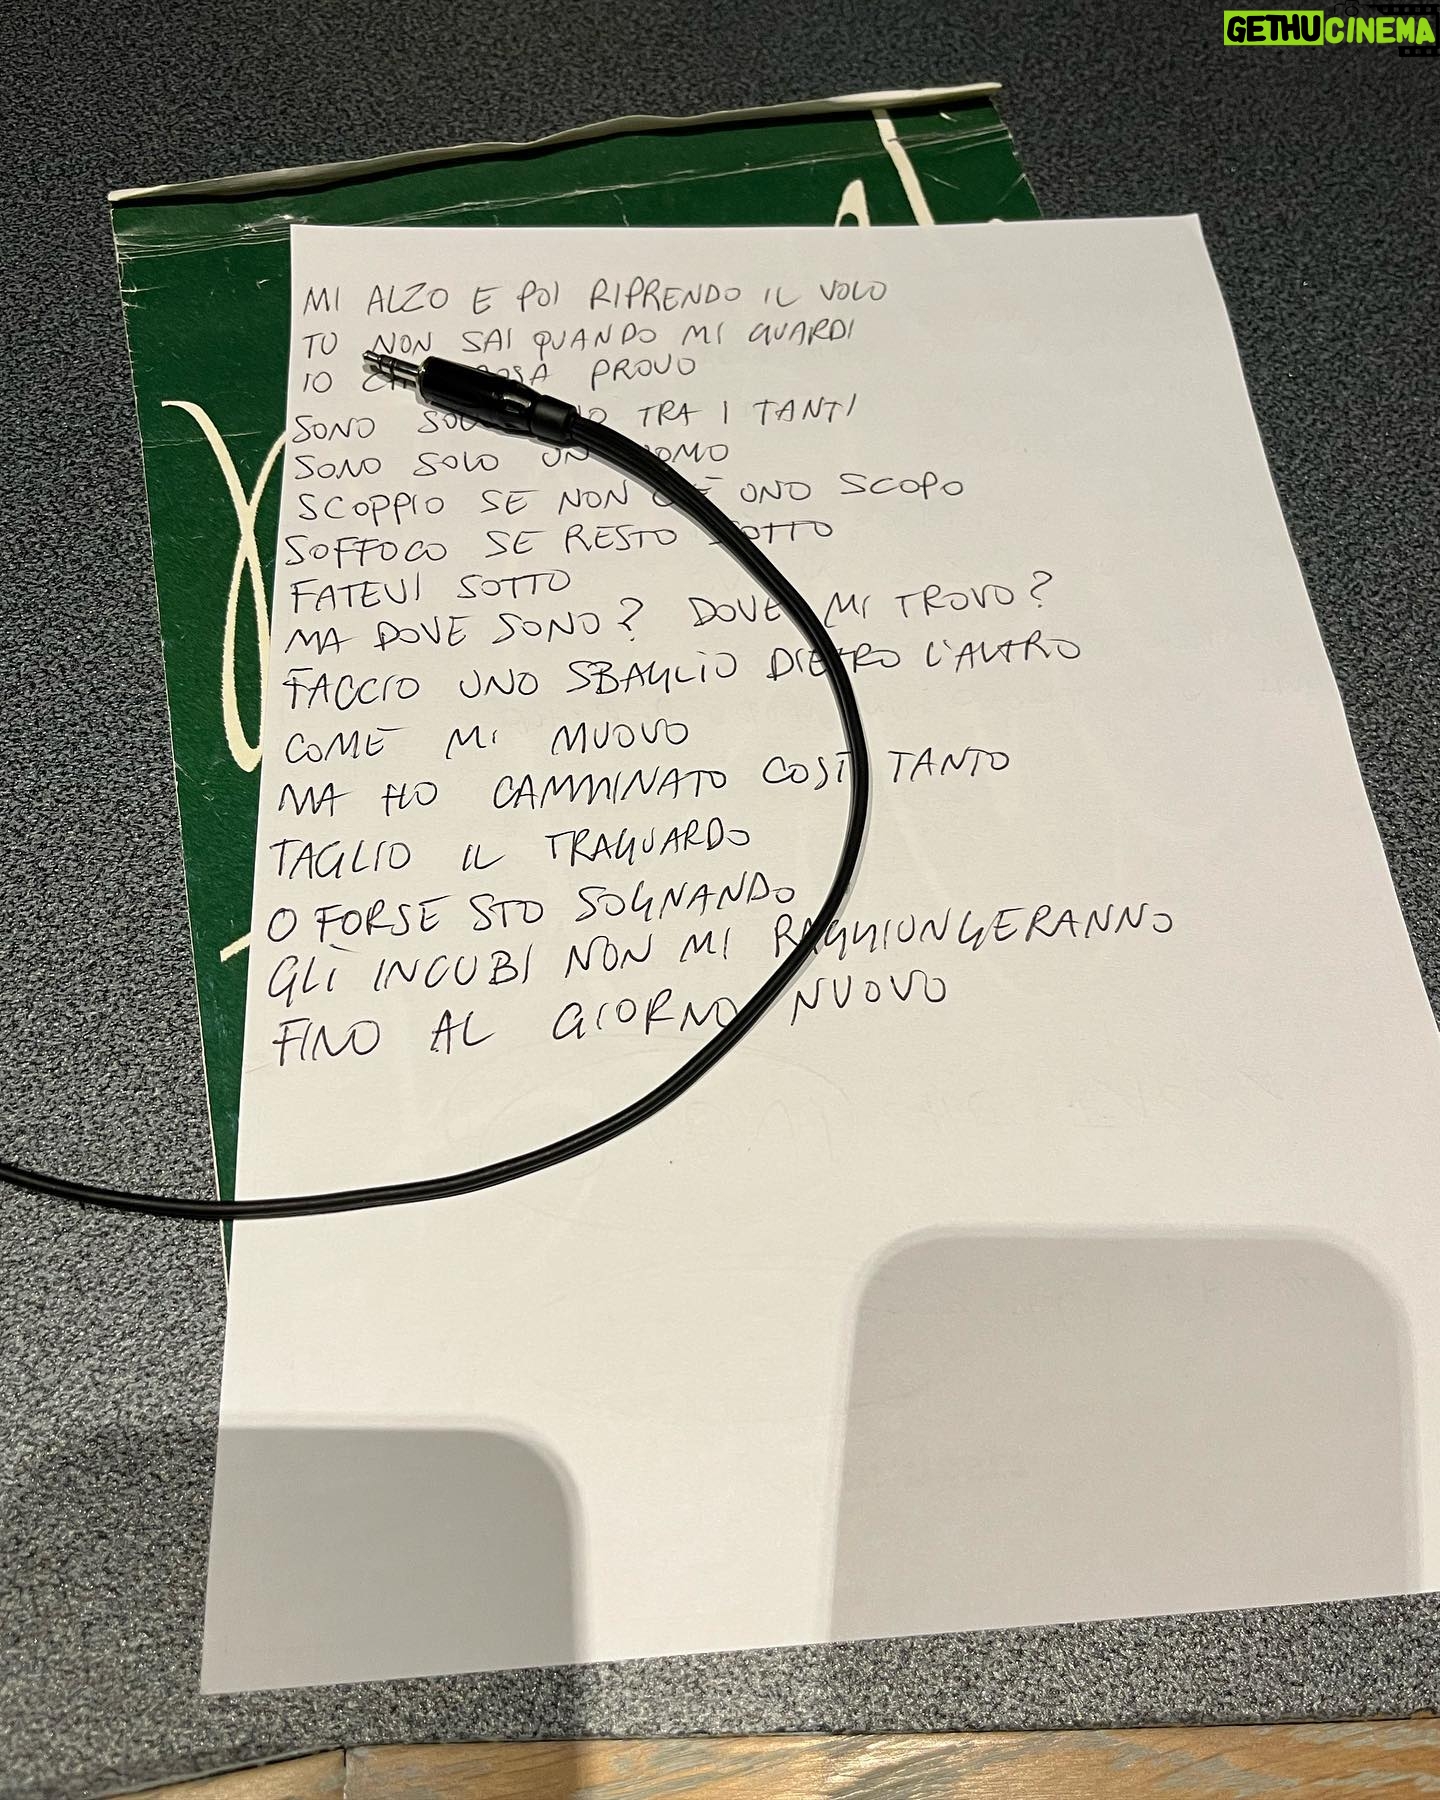 GETHUCINEMA
MI ALZO E POI RIPRENDO IL VOLO
TU NON SAI QUANDO MI GUARDI
IO PROVO
SONO TRA I TANTI
SONO SOLO UN UOMO
SCOPPIO SE NON C'È UNO SCOPO
SOFFOCO SE RESTO SOTTO
FATEVI SOTTO
MA DOVE SONO? DOVE MI TROVO?
FACCIO UNO SBAGLIO DIETRO L'ALTRO
COME MI MUOVO
MA HO CAMMINATO COSÌ TANTO
TAGLIO IL TRAGUARDO
O FORSE STO SOGNANDO
GLI INCUBI NON MI RAGGIUNGERANNO
FINO AL GIORNO NUOVO